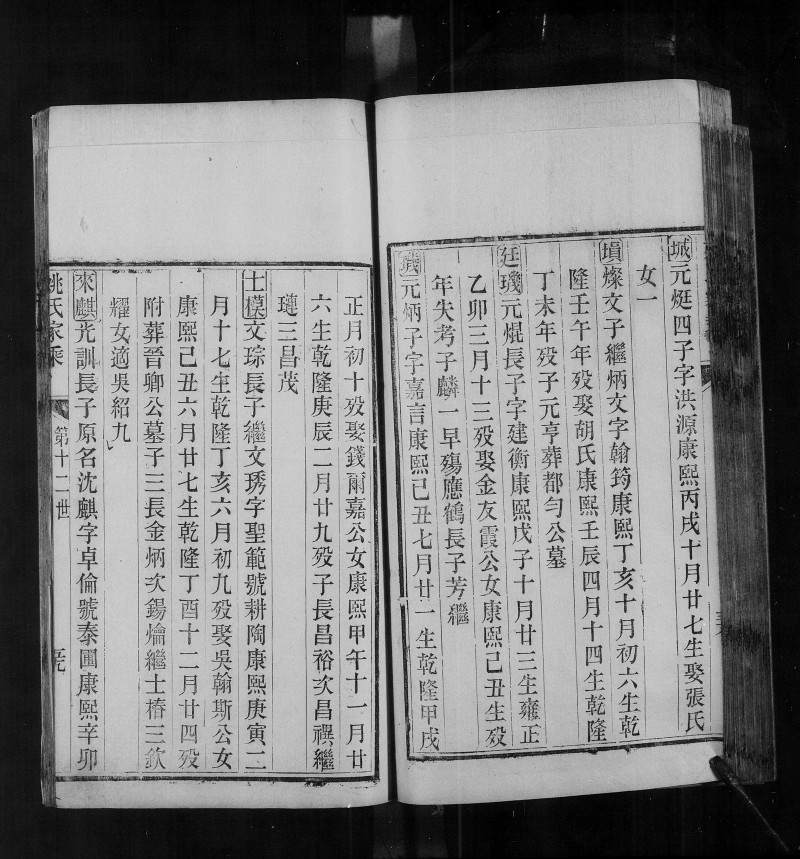 城元烶四子字洪源康熙丙戌十月廿七生娶張氏
女一
塤燦文子繼炳文字翰筠康熙丁亥十月初六生乾
隆壬午年歿娶胡氏康熙壬辰四月十四生乾隆
丁未年歿子元亨葬都勻公墓
廷璣元焜長子字建衡康熙戊子十月廿三生雍正
乙卯三月十三歿娶金友霞公女康熙己丑生歿
年失考子麟一早殤應鶴長子芳繼
元炳子字嘉言康熙己丑七月廿一生乾隆甲戌
正月初十歿娶錢爾嘉公女康熙甲午十一月廿
六生乾隆庚辰二月廿九歿子長昌裕次昌禩繼
璉三昌茂
士模文琮長子繼文琇字聖範號耕陶康熙庚寅二
月十七生乾隆丁亥六月初九歿娶吳翰斯公女
康熙己丑六月廿七生乾隆丁酉十二月廿四歿
附葬晉卿公墓子三長金炳次鍚爚繼士椿三欽
耀女適吳紹九
來麒光訓長子原名沈麒字卓倫號泰圃康熙辛卯
姚氏家乘
第十二世